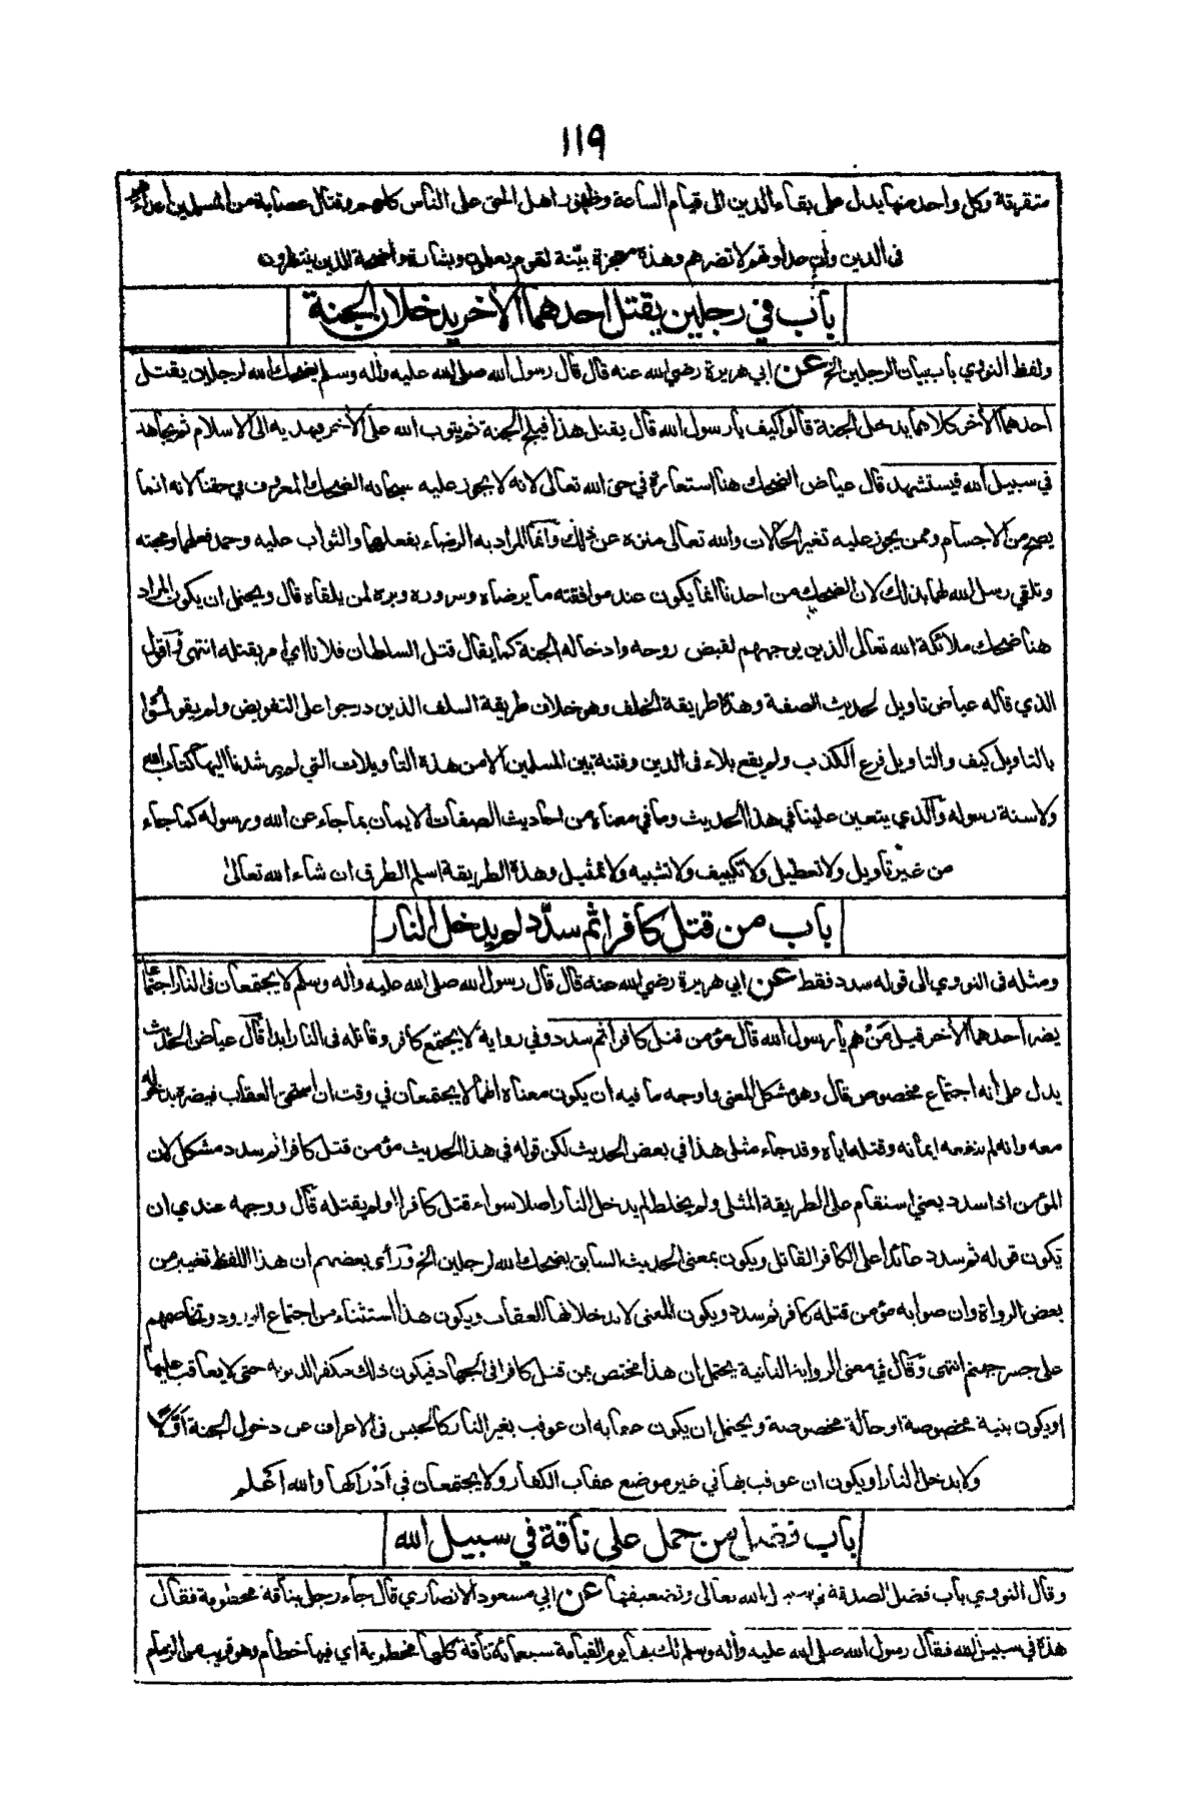 ١١٩
متفرقة وكل واحد منها يدل على بقاء الدين الى قيام الساعة وظهور اهل الحق على الناس كلهم وقتال عصابة من المسلمين اعداءهم
فى الدين وان عداوتهم لا تضرهم وهذه معجزة بيّنة لقوم يعلمون وبشارة واضحة للذين ينتظرون
باب في رجلين يقتل احدهما الأخر يدخلان الجنة
ولفظ النووي باب بيان الرجلين الخ عن ابي هريرة رضي الله عنه قال قال رسول الله صلى الله عليه وأله وسلم يضحك الله لرجلين يقتل
احدهما الأخر كلاهما يدخل الجنة قالوا كيف يا رسول الله قال يقتل هذا فيلج الجنة ثم يتوب الله على الأخر فيهديه الى الاسلام ثم يجاهد
في سبيل الله فيستشهد قال عياض الضحك هنا استعارة في حق الله تعالى لانه لا يجوز عليه سبحانه الضحك المعروف في حقنا لانه انما
يصح من الاجسام وممن يجوز عليه تغير الحالات والله تعالى منزه عن ذلك وانما المراد به الرضاء بفعلهما والثواب عليه وحمد فعلهما ومحبته
وتلقي رسل الله لهما بذلك لان الضحك من احدنا انما يكون عند موافقته ما يرضاه وسروره وبره لمن يلقاه قال ويحتمل ان يكون المراد
هنا ضحك ملائكة الله تعالى الذين يوجههم لقبض روحه وادخاله الجنة كما يقال قتل السلطان فلانا اي امر بقتله انتهى واقول
الذي قاله عياض تاويل لحديث الصفة وهذا طريقة الخلف وهو خلاف طريقة السلف الذين درجوا على التفويض ولم يقولوا
بالتاويل كيف والتاويل فرع الكذب ولم يقع بلاء فى الدين وفتنة بين المسلمين الا من هذه التاويلات التي لم يرشدنا اليها كتاب الله
ولا سنة رسوله والذي يتعين علينا في هذا الحديث وما في معناه من احاديث الصفات الايمان بما جاء عن الله ورسوله كما جاء
من غير تاويل ولا تعطيل ولا تكييف ولا تشبيه ولا تمثيل وهذه الطريقة اسلم الطرق ان شاء الله تعالى
باب من قتل كافرا ثم سدّد لم يدخل النار
ومثله فى النووي الى قوله سدد فقط عن ابي هريرة رضي الله عنه قال قال رسول الله صلى الله عليه وأله وسلم لا يجتمعان فى النار اجتماعا
يضر احدهما الأخر قيل مَنْ هم يا رسول الله قال مؤمن قتل كافرا ثم سدد وفي رواية لا يجتمع كافر وقاتله فى النار ابدا قال عياض الحديث
يدل على أنه اجتماع مخصوص قال وهو مشكل المعنى واوجه ما فيه ان يكون معناه انهما لا يجتمعان في وقت ان استحق العقاب فيضره بدخوله
معه وانه لم ينفعه ايمانه وقتله اياه وقد جاء مثل هذا في بعض الحديث لكن قوله في هذا الحديث مؤمن قتل كافرا ثم سدد مشكل لان
المؤمن اذا سدد يعني استقام على الطريقة المثلى ولم يخلط لم يدخل النار اصلا سواء قتل كافرا او لم يقتله قال ووجهه عندي ان
يكون قوله ثم سدد عائدا على الكافر القاتل ويكون بمعنى الحديث السابق يضحك الله لرجلين الخ ورأى بعضهم ان هذا اللفظ تغيير من
بعض الرواة وان صوابه مؤمن قتله كافر ثم سدد ويكون المعنى لا يدخلانها للعقاب ويكون هذا استثناء من اجتماع الورود وتخاصمهم
على جسر جهنم انتهى وقال في معنى الرواية الثانية يحتمل ان هذا مختص بمن قتل كافرا في الجهاد فيكون ذلك مكفرا لذنوبه حتى لا يعاقب عليها
او يكون بنية مخصوصة او حالة مخصوصة ويحتمل ان يكون عقابه ان عوقب بغير النار كالحبس فى الاعراف عن دخول الجنة اوّلا
ولا يدخل النار او يكون ان عوقب بها في غير موضع عقاب الكفار ولا يجتمعان في ادْراكها والله اعلم
باب فضل من حمل على ناقة في سبيل الله
وقال النووي باب فضل الصدقة في سبيل الله تعالى وتضعيفها عن ابي مسعود الانصاري قال جاء رجل بناقة مخطومة فقال
هذه في سبيل الله فقال رسول الله صلى الله عليه وأله وسلم لك بها يوم القيامة سبعمائة ناقة كلها مخطومة اي فيها خطام وهو قريب من الزمام